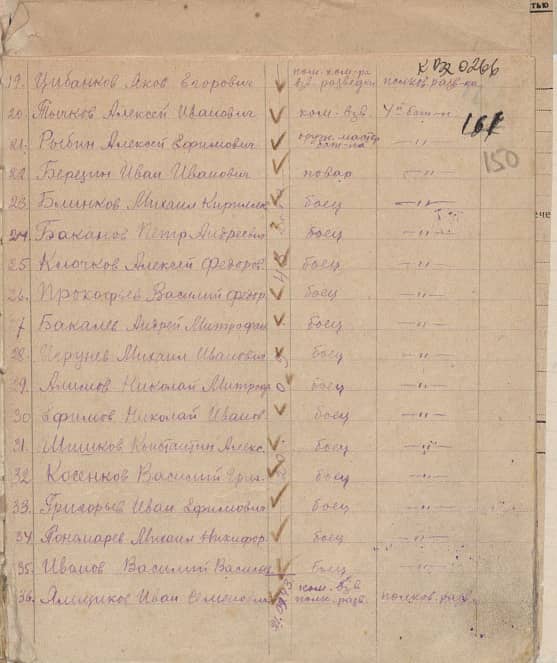 тью
К вх 0266
19. Цибанков Яков Егорович пом. ком-ра взв. разведки полков. разв-ка
20. Тычков Алексей Иванович ком. взв. 4й бат-н
161
21. Рыбин Алексей Ефимович оруж. мастер бат-на —"—
150
22. Березин Иван Иванович повар —"—
23. Блинков Михаил боец —"—
24. Баканов Петр Андреевич боец —"—
25. Клочков Алексей Федоров. боец —"—
26. Прокофьев Василий Федор. боец —"—
27 Бакалев Андрей Митрофан боец —"—
28. Михаил Иванович боец —"—
29. Алимов Николай Митроф боец —"—
30 Ефимов Николай Иванов боец —"—
31. Шишков Константин Алекс. боец —"—
32 Косенков Василий Григ. боец —"—
33. Григорьев Иван Ефимович боец —"—
34 Пономарев Михаил Никифор. боец —"—
35. Иванов Василий Василь боец —"—
36. Ямщиков Иван Семенович ком. взв полк. разв. полков. разв.